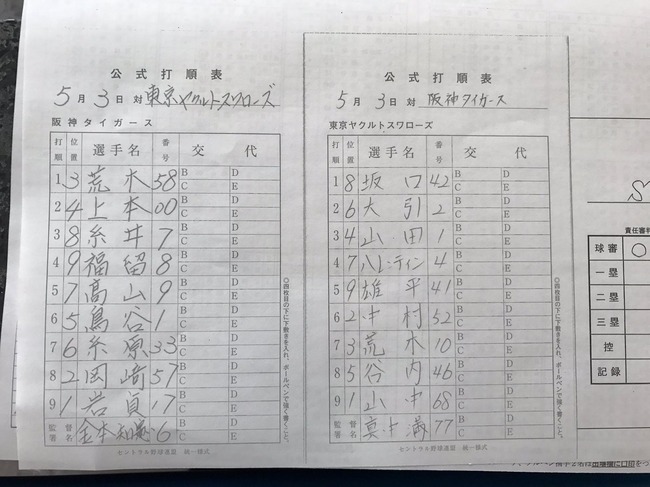 公式打順表
5月3日対 東京ヤクルトスワローズ
阪神タイガース
打順 位置 選手名 番号 交代
1 3 荒木 58 B D C E
2 4 上本 00 B D C E
3 8 糸井 7 B D C E
4 9 福留 8 B D C E
5 7 高山 9 B D C E
6 5 鳥谷 1 B D C E
7 6 糸原 33 B D C E
8 2 岡﨑 57 B D C E
9 1 岩貞 17 B D C E
監督署名 金本知憲 6
セントラル野球連盟 統一様式
◎四枚目の下に下敷きを入れ、ボールペンで強く書くこと。
公式打順表
5月3日対 阪神タイガース
東京ヤクルトスワローズ
打順 位置 選手名 番号 交代
1 8 坂口 42 B D C E
2 6 大引 2 B D C E
3 4 山田 1 B D C E
4 7 バレンティン 4 B D C E
5 9 雄平 41 B D C E
6 2 中村 52 B D C E
7 3 荒木 10 B D C E
8 5 谷内 46 B D C E
9 1 山中 68 B D C E
監督署名 真中満 77
セントラル野球連盟 統一様式
◎四枚目の下に下敷きを入れ、ボールペンで強く書くこと。
S
責任審判
球審 ○
一塁
二塁
三塁
控
記録